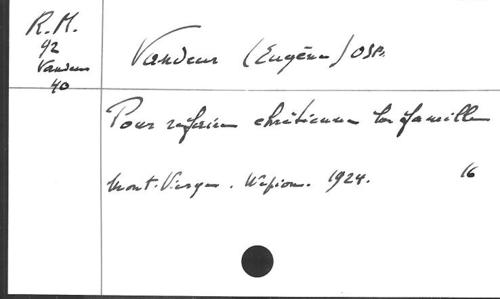 R.M.
92
Vandeur
40
Vandeur (Eugène) OSB.
Pour refaire chrétienne la famille
Mont-Vierge. Wépion. 1924. 16